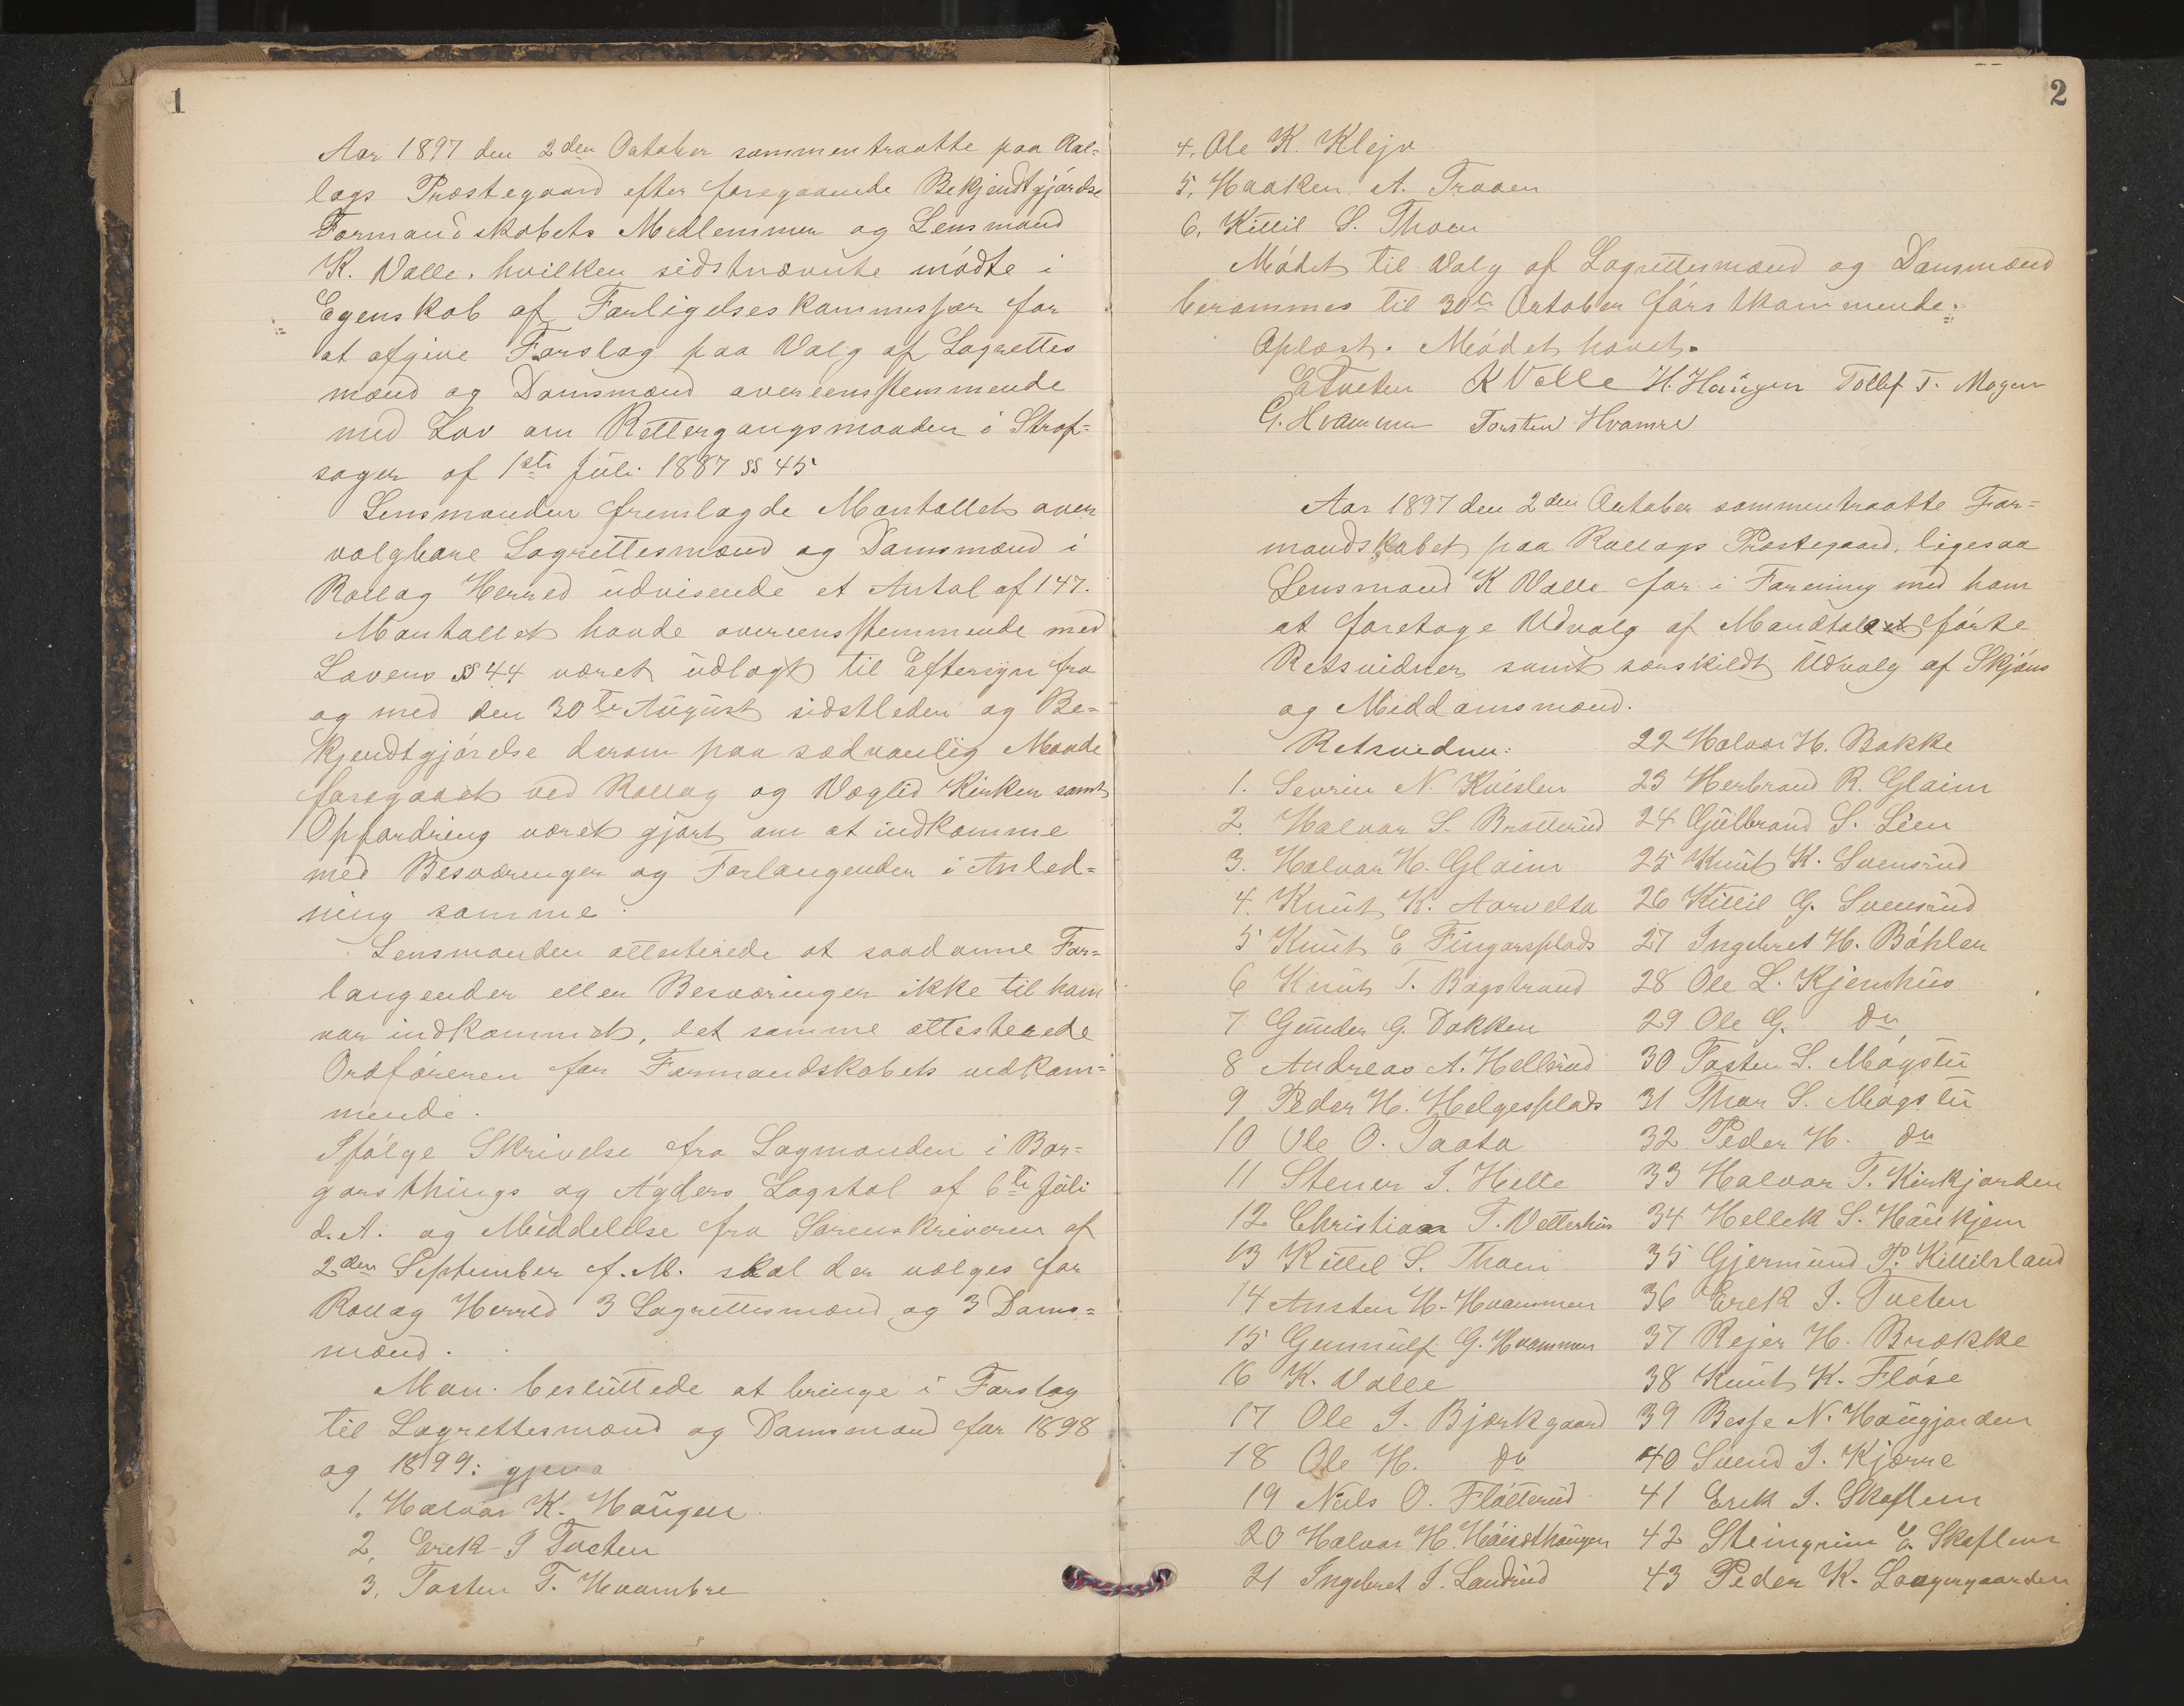 1
Aar 1897 den 2den October sammentraatte paa Rol=
lags Præstegaard efter foregaaende Bekjendtgjørelse
Formandskabets Medlemmer og Lensmand
K. Valle, hvilken sidstnævnte mødte i
Egenskab af Forligelseskommissær for
at afgive Forslag paa Valg af Lagrettes
mænd og Domsmænd overensstemmende
med Lov om Rettergangsmaaden i Straf=
sager af 1ste Juli 1887 §§ 45
Lensmanden fremlagde Mantallet over
valgbare Lagrettesmænd og Domsmænd i
Rollag Herred udvisende et Antal af 147.
Mantallet havde overensstemmende med
Lovens §§ 44 været udlagt til Eftersyn fra
og med den 30te August sidstleden og Be=
kjendtgjørelse derom paa sædvanlig Maade
foregaaet ved Rollag og Væglid Kirker samt
Opfordring været gjort om at indkomme
med Besværinger og Forlangender i Anled=
ning samme.
Lensmanden attesterede at saadanne For=
langender eller Besværinger ikke til ham
var indkommet, det samme attesterede
Ordføreren for Formandskabets vedkom=
mende.
Ifølge Skrivelse fra Lagmanden i Bor=
garthings og Agders Lagstol af 6te Juli
d. A. og Meddelelse fra Sorenskriveren af
2den September f. M. skal der vælges for
Rollag Herred 3 Lagrettesmænd og 3 Doms=
mænd.
Man besluttede at bringe i Forslag
til Lagrettesmænd og Domsmænd for 1898
og 1899:
1. Halvor K. Haugen
2. Erik I Tveten
3. Tosten T. Hvambre
2
4. Ole K. Klejv
5. Haaken A. Traaen
6. Kittil S. Thoen
Mødet til Valg af Lagrettesmænd og Domsmænd
berammes til 30te October førstkommende.
Oplæst. Mødet hævet.
E Tveten K Valle H. Haugen Tollef T. Mogen
G. Hvammen Torsten Hvamre
Aar 1897 den 2den October sammentraatte For=
mandskabet paa Rollags Præstegaard, ligesaa
Lensmand K Valle for i Forening med ham
at foretage Udvalg af Mandtallet førte
Retsvidner samt særskildt Udvalg af Skjøns
og Meddomsmænd.
Retsvidner:
1. Sevrin N. Kvislen
2. Halvor S. Bratterud
3. Halvor H. Glaim
4. Knut K. Aarvelta
5 Knut E Fingarsplads
6 Knut T. Bagstrand
7 Gunder G. Dokken
8 Andreas A. Hellerud
9 Peder H. Helgesplads
10 Ole O. Taata
11 Stener I. Helle
12 Christian T. Vetterhus
13 Kittil S. Thoen
14 Ansten H. Hvammen
15 Gunnulf G. Hvammen
16 K. Valle
17 Ole I. Bjørkgaard
18 Ole H. do
19 Nils O. Fløtterud
20 Halvor H.
21 Ingebret I. Landrud
22 Halvor H. Bakke
23 Herbrand R. Glaim
24 Gulbrand S. Lien
25 Knut K. Svensrud
26 Kittil G. Svensrud
27 Ingebret H. Bøhler
28 Ole L. Kjemhus
29 Ole G. do
30 Tosten S. Møgstu
31 Thor S. Møgstu
32 Peder H. do
33 Halvor T. Kirkjorden
34 Hellek S. Haukjem
35 Gjermund P. Kittilsland
36 Erik I. Tveten
37 Rejer H. Brække
38 Knut K. Fløse
39 Besse N. Haugjorden
40 Svend I. Kjørne
41 Erik I. Skaflem
42 Steingrim E. Skaflem
43 Peder K. Laagergaarden